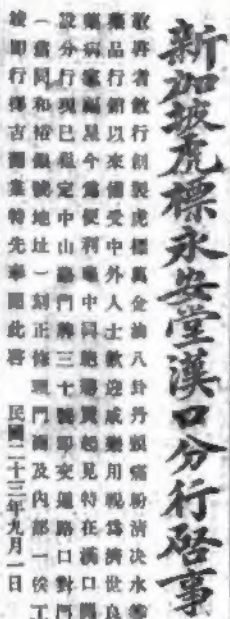 新加坡虎標永安堂漢口分行啓事
敬啓者敝行創製虎標萬金油八卦丹頭痛粉清快水等
藥品行銷以來備受中外人士歡迎咸樂用視爲濟世良
今爲便利 中同胞 起見特在漢口
設分行現已租定中山 門牌三十 號即交通路口對門
一當同和裕銀號地址一刻正修理門面及內部一俟工
竣即行擇吉開業特先奉聞此啓 民國二十三年九月一日